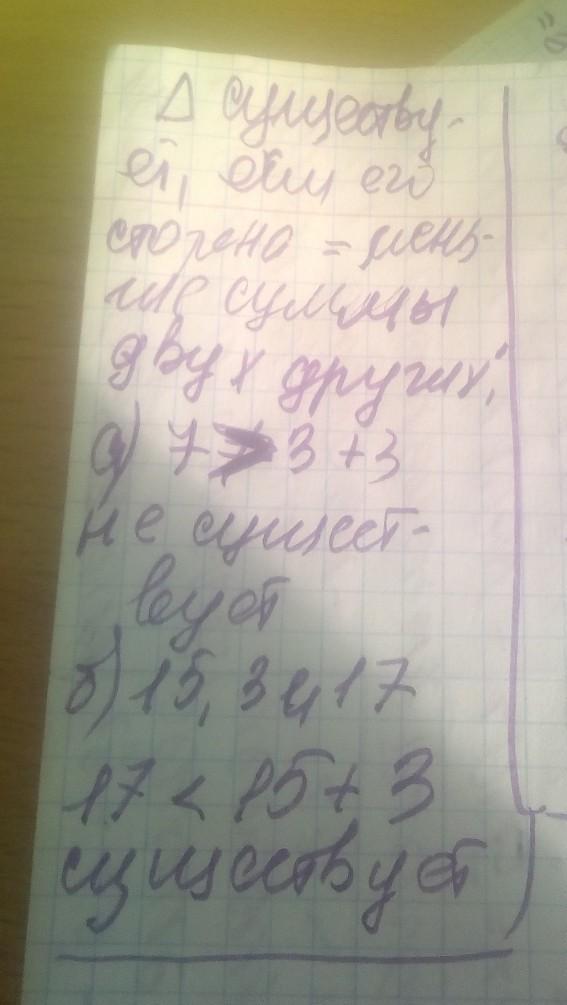 Δ существу-
ет, если его
сторона = мень-
ше суммы
двух других;
а) 7 > 3 + 3
не сущест-
вует
б) 15, 3 и 17
17 < 15 + 3
существует